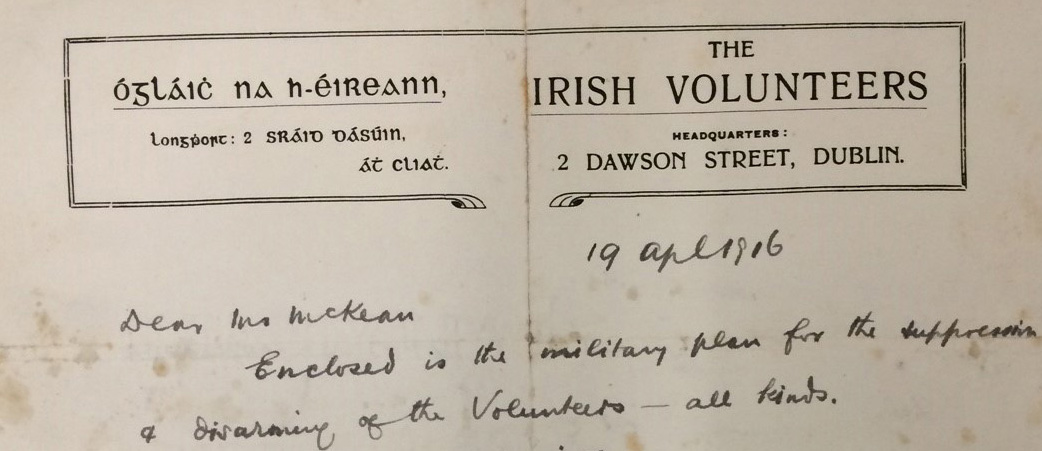 ógláiċ na h-éireann,
longṗort: 2 sráid dásúin,
áṫ cliaṫ.
THE
IRISH VOLUNTEERS
HEADQUARTERS:
2 DAWSON STREET, DUBLIN.
19 Apl 1916
Dear Mrs McKean
Enclosed is the military plan for the suppression
& disarming of the Volunteers — all kinds.